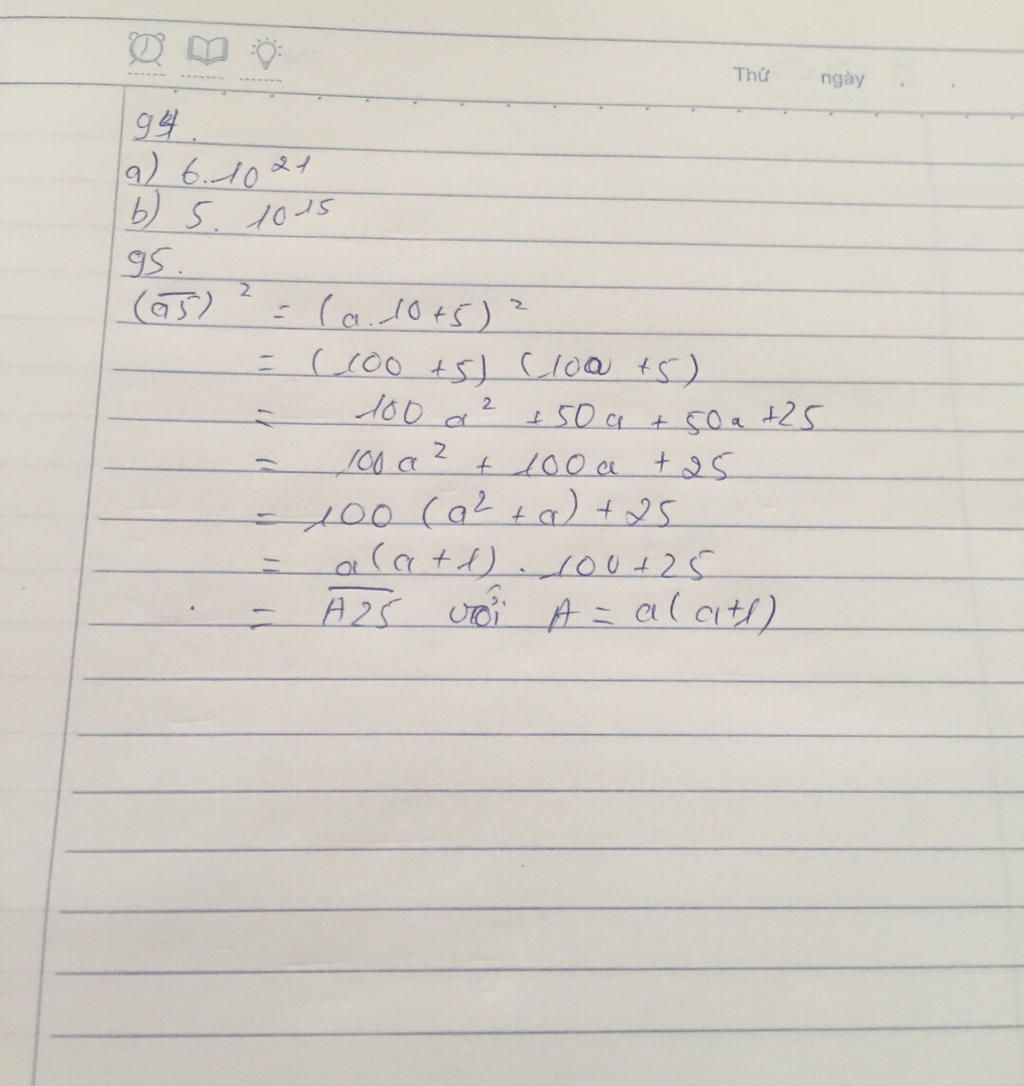 Thứ ngày
94.
a) 6.10²¹
b) 5. 10¹⁵
95.
(a̅5̅)² = (a.10+5)²
= (100 +5) (10a +5)
= 100 a² +50a + 50a +25
= 100a² + 100a + 25
= 100 (a² + a) + 25
= a(a+1) . 100+25
= A̅2̅5̅ với A = a(a+1)